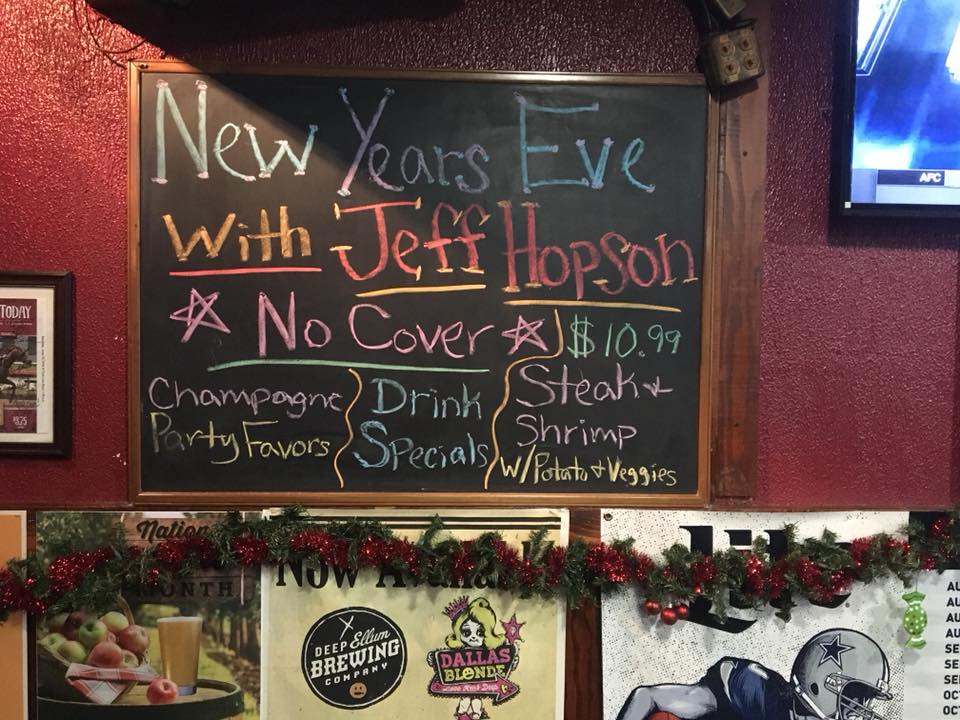 New Years Eve
With Jeff Hopson
No Cover
$10.99
Champagne
Party Favors
Drink
Specials
Steak +
Shrimp
w/Potato + Veggies
AFC
TODAY
MONTH
Now
DEEP Ellum
BREWING
COMPANY
DALLAS
BLONDE
AU
AU
AU
AU
SE
SE
SE
OCT
OCT